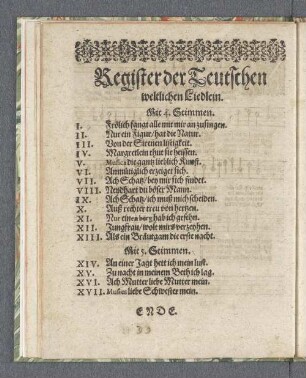 Register der Teutschen
weltlichen Liedlein.
Mit 4. Stimmen.
I. Frölich fangt alle mit mir an zusingen.
II. Nur ein Figur/ hat die Natur.
III. Von der Sirenen listigkeit.
IV. Margretlein thut sie heissen.
V. Musica die gantz lieblich Kunst.
VI. Anmütiglich erzeiget sich.
VII. Ach Schatz/ bey mir sich findet.
VIII. Neydhart du böser Mann.
IX. Ach Schatz/ ich muß mich scheiden.
X. Auß rechter trew von hertzen.
XI. Nur einen berg hab ich gesehn.
XII. Jungfraw/ wölt mirs verzeyhen.
XIII. Als ein Bräutgam die erste nacht.
Mit 5. Stimmen.
XIV. An einer Jagt hett ich mein lust.
XV. Zu nacht in meinem Beth ich lag.
XVI. Ach Mutter liebe Mutter mein.
XVII. liebe Schwester mein.
ENDE.